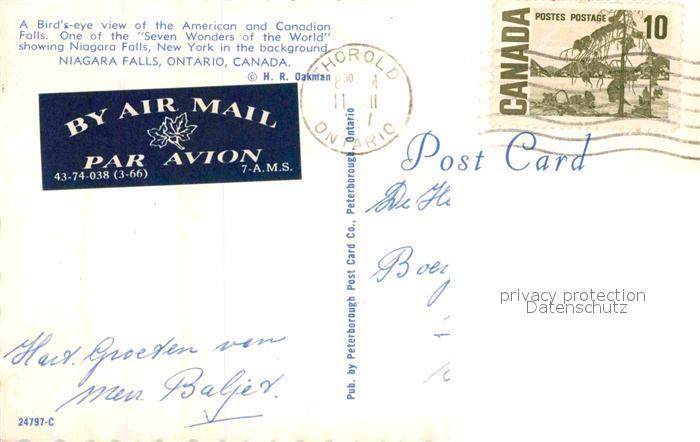 A Bird's-eye view of the American and Canadian
Falls. One of the "Seven Wonders of the World"
showing Niagara Falls, New York in the background.
NIAGARA FALLS, ONTARIO, CANADA.
© H. R. Oakman
BY AIR MAIL
PAR AVION
43-74-038 (3-66)
7-A.M.S.
THOROLD
ONTARIO
CANADA
POSTES POSTAGE
10
Post Card
Pub. by Peterborough Post Card Co., Peterborough, Ontario
De
privacy protection
Datenschutz
Hart. Groeten van
Mevr. Baljet.
24797-C